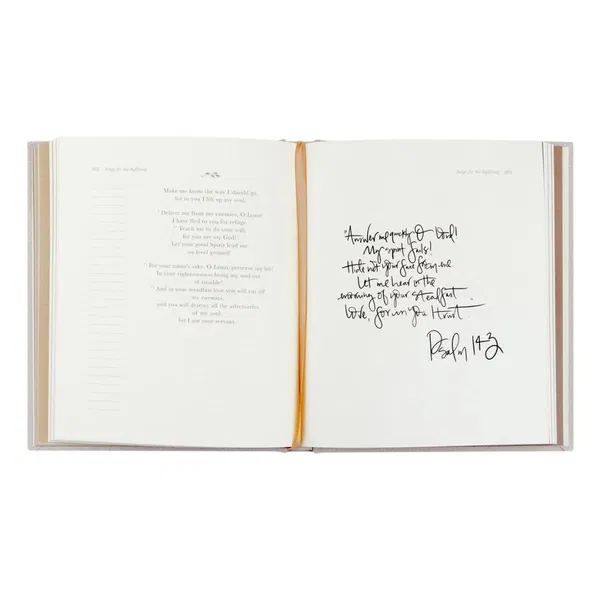 Songs for the Suffering
Make me know the way I should go,
for to you I lift up my soul.
Deliver me from my enemies, O LORD!
I have fled to you for refuge.
Teach me to do your will,
for you are my God!
Let your good Spirit lead me
on level ground!
For your name's sake, O LORD, preserve my life!
In your righteousness bring my soul out
of trouble!
And in your steadfast love you will cut off
my enemies,
and you will destroy all the adversaries
of my soul,
for I am your servant.
Songs for the Suffering
"Answer me quickly O Lord!
My spirit fails!
Hide not your face from me
Let me hear in the
morning of your steadfast
love, for in you I trust.
Psalm 143